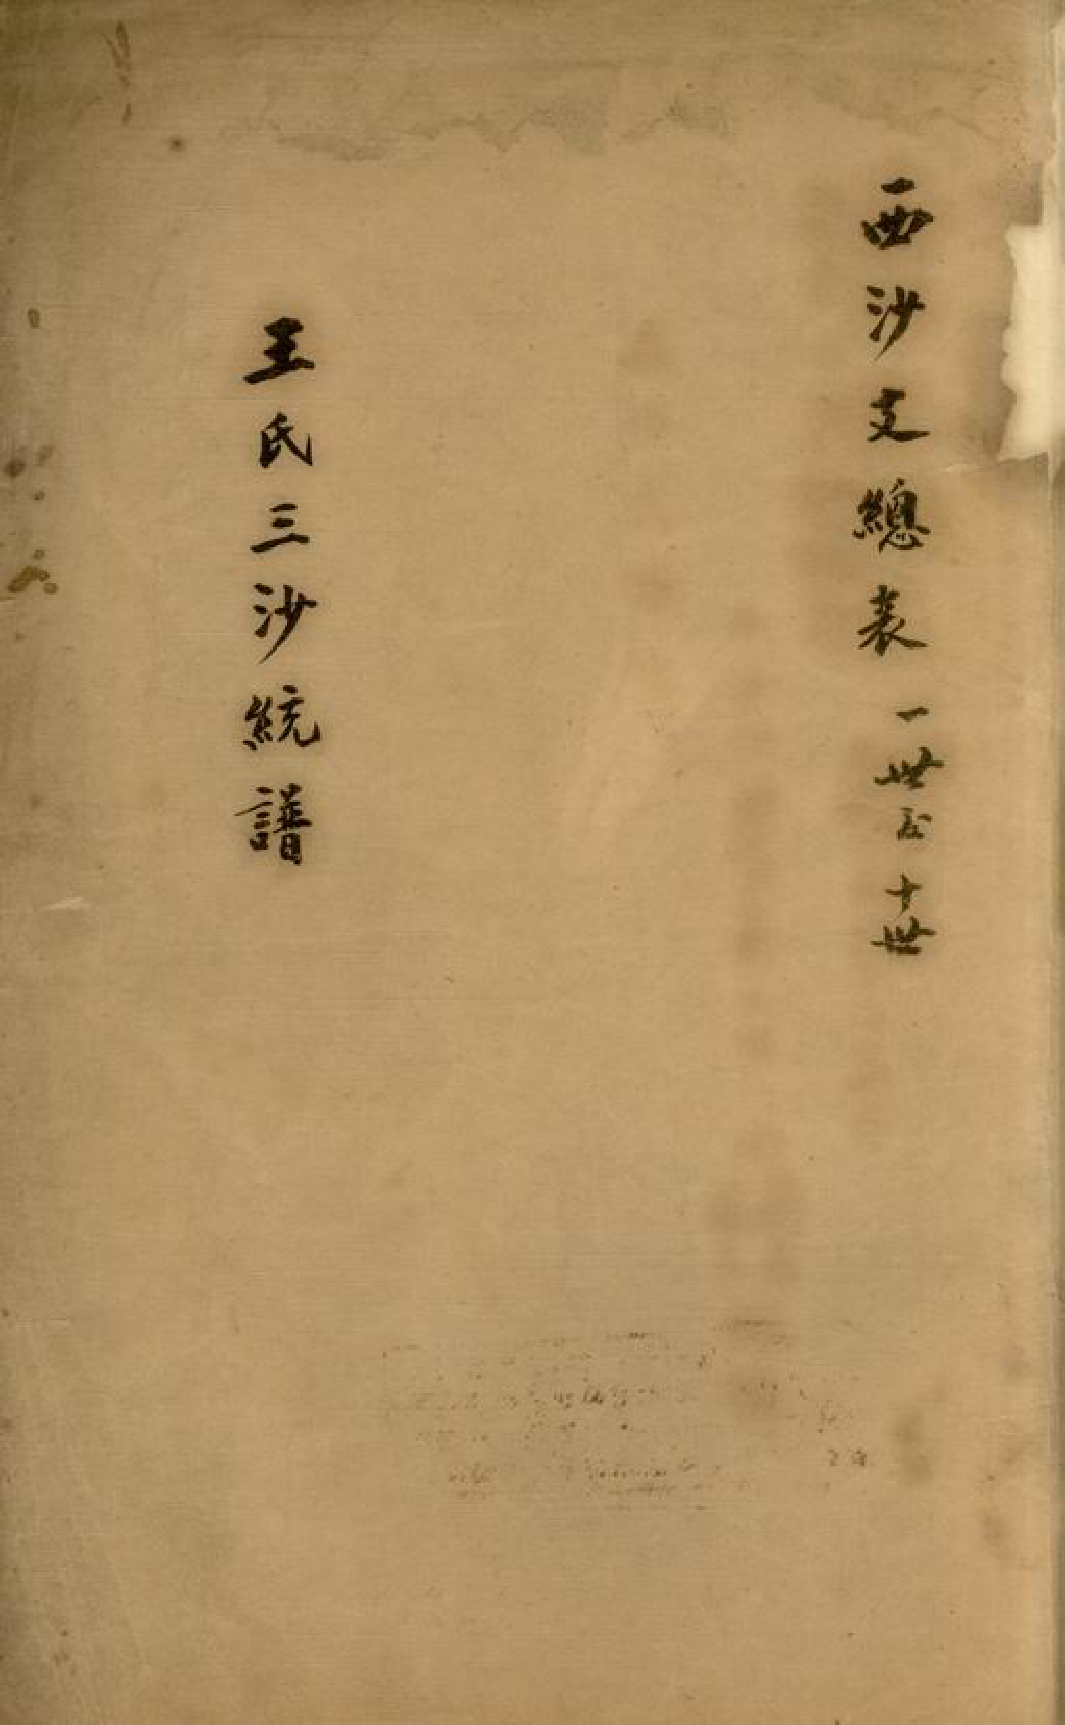 西沙支總表 一世至十世
王氏三沙統譜